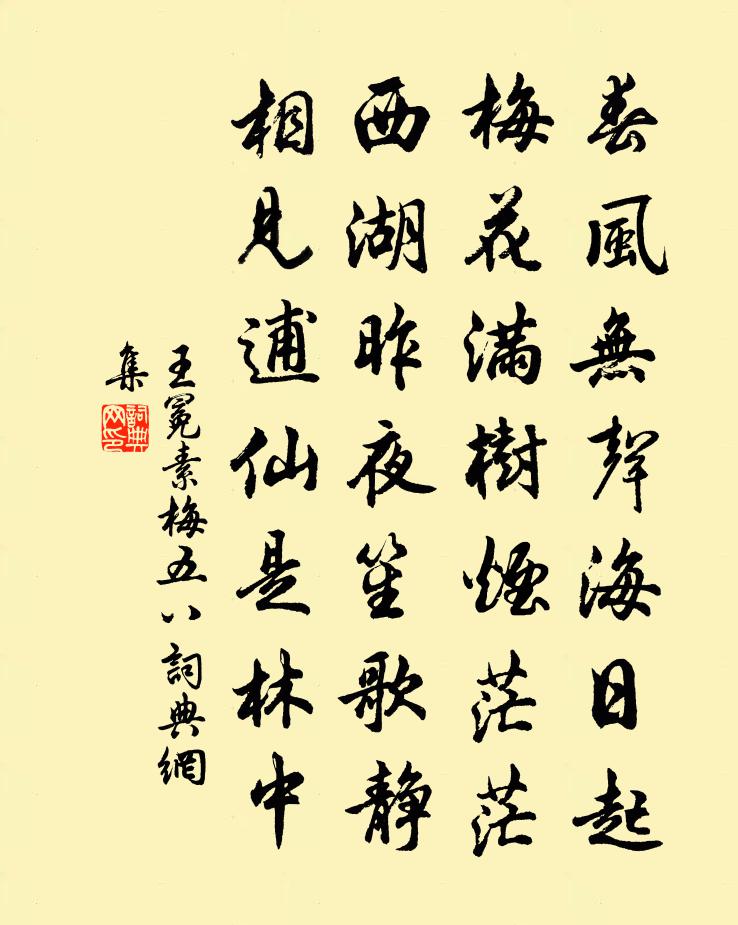 春風無聲海日起
梅花滿樹煙茫茫
西湖昨夜笙歌静
相見逋仙是林中
王冕素梅五八詞典網
集
詞典網印